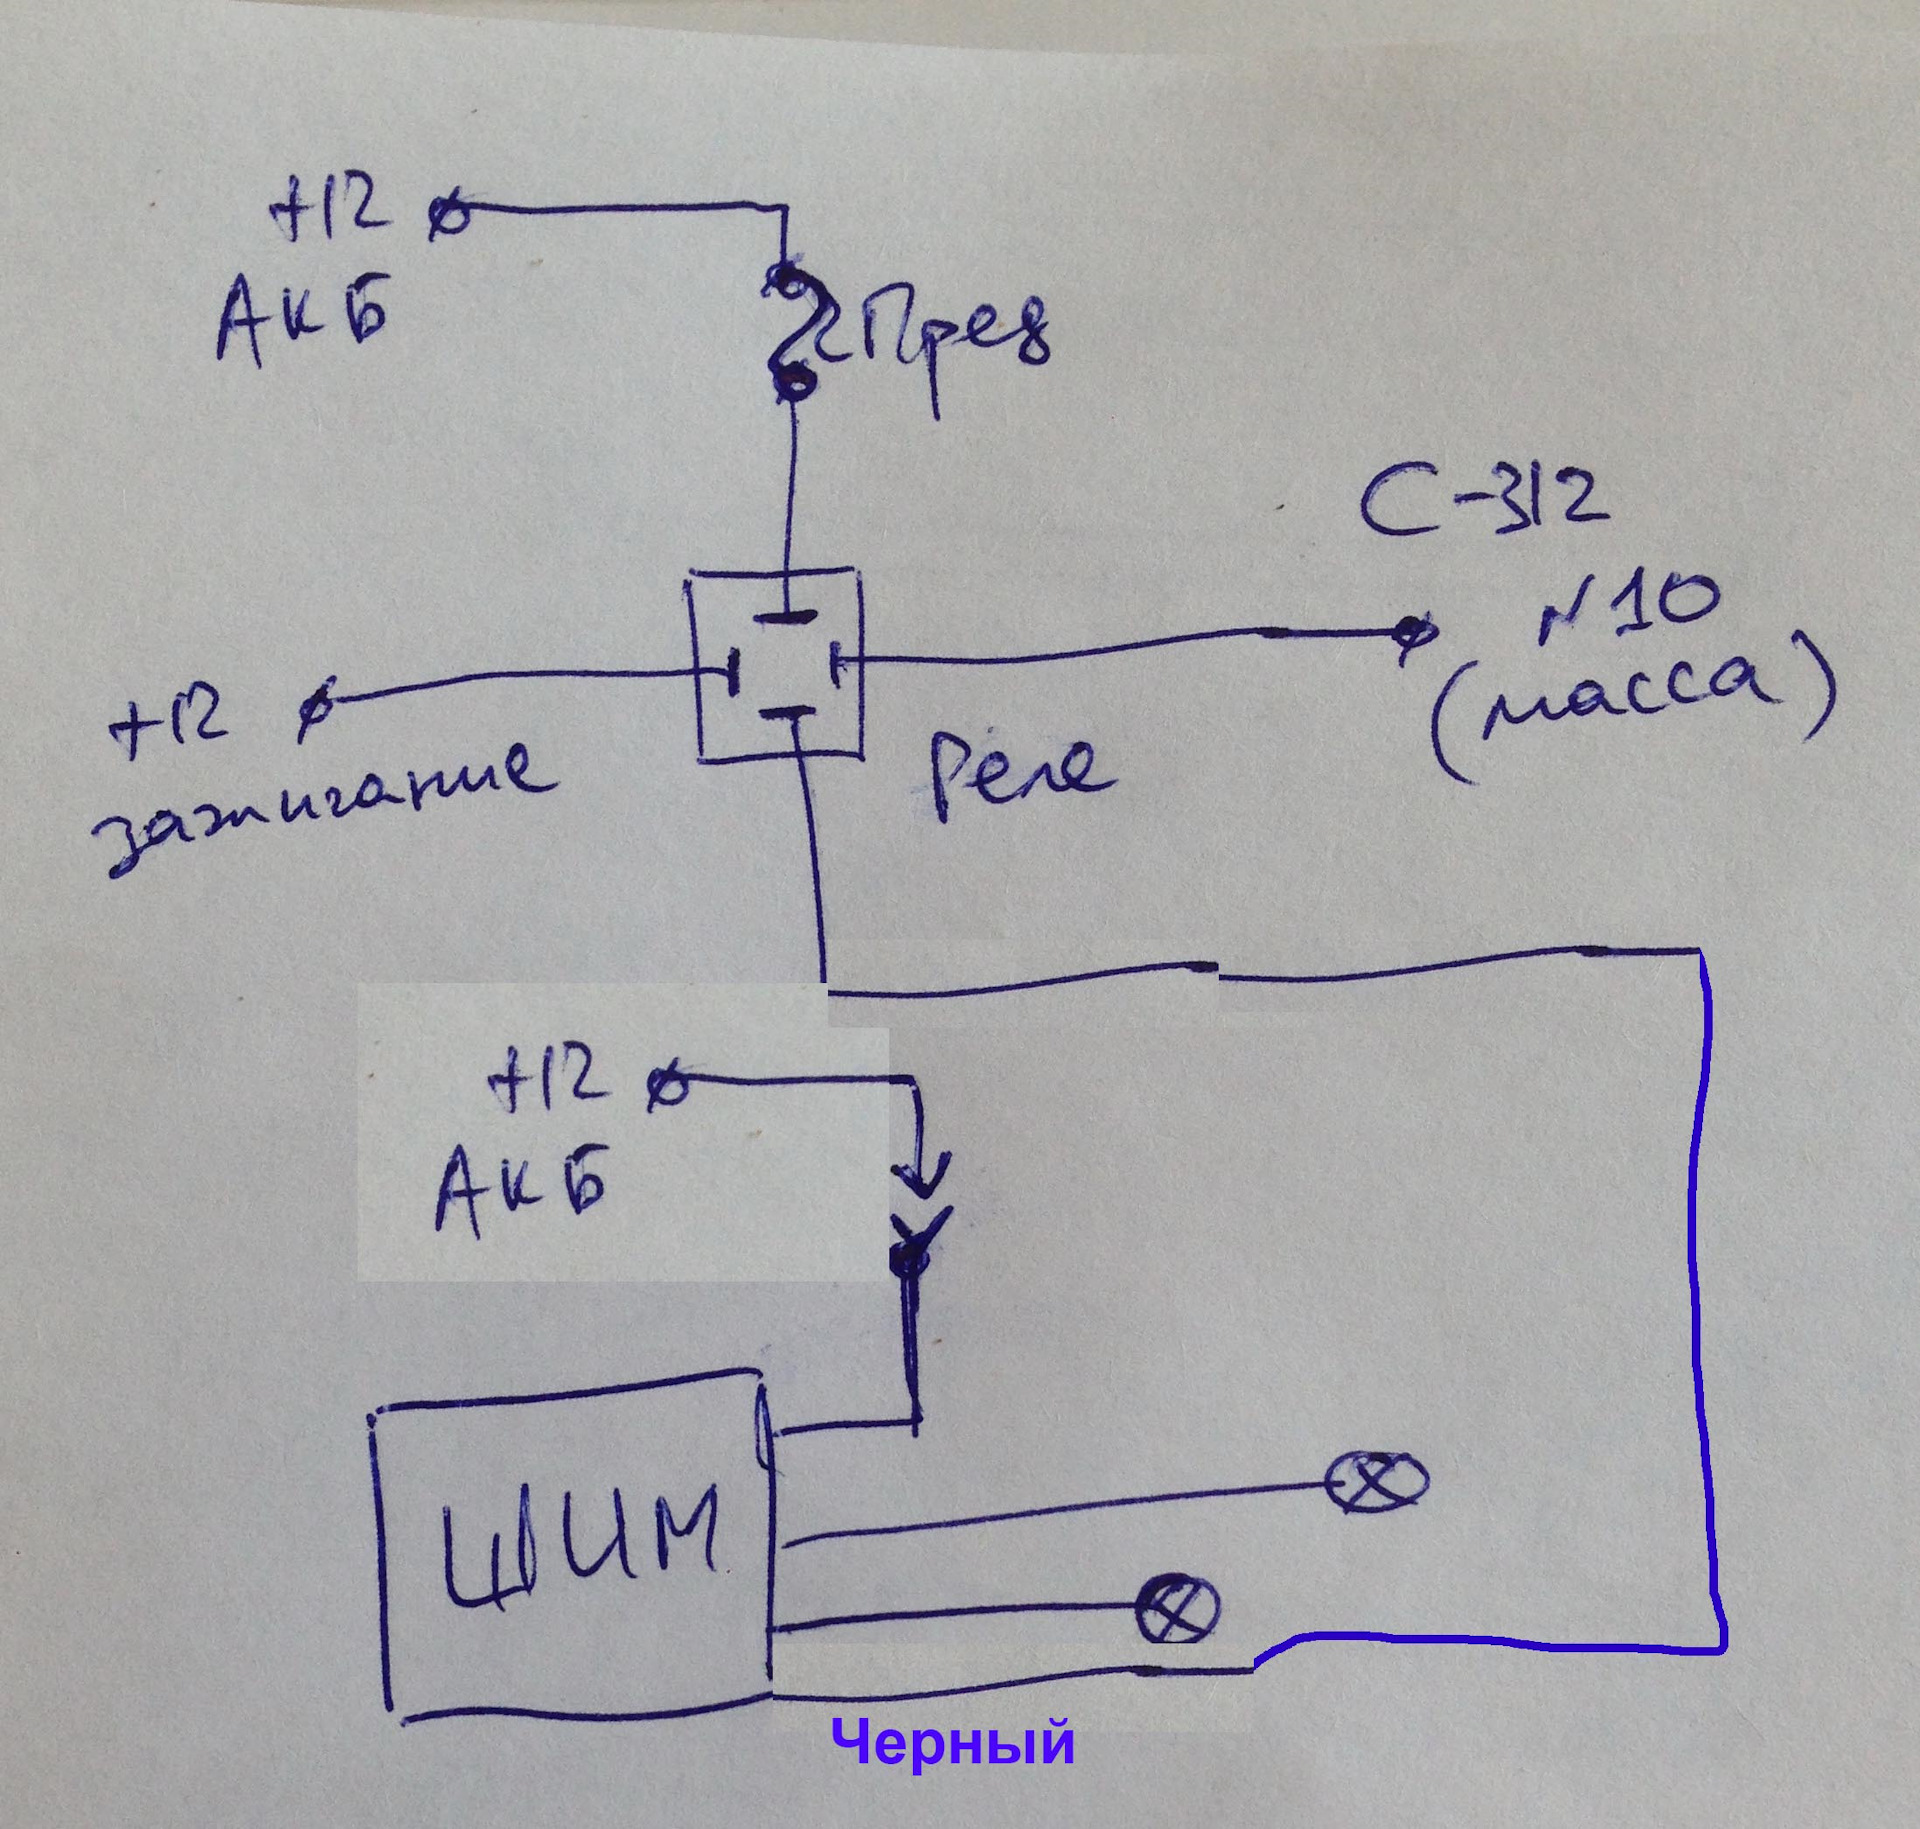 +12
АКБ
Пред
С-312
N10
(масса)
+12
зажигание
Реле
+12
АКБ
ШИМ
Черный